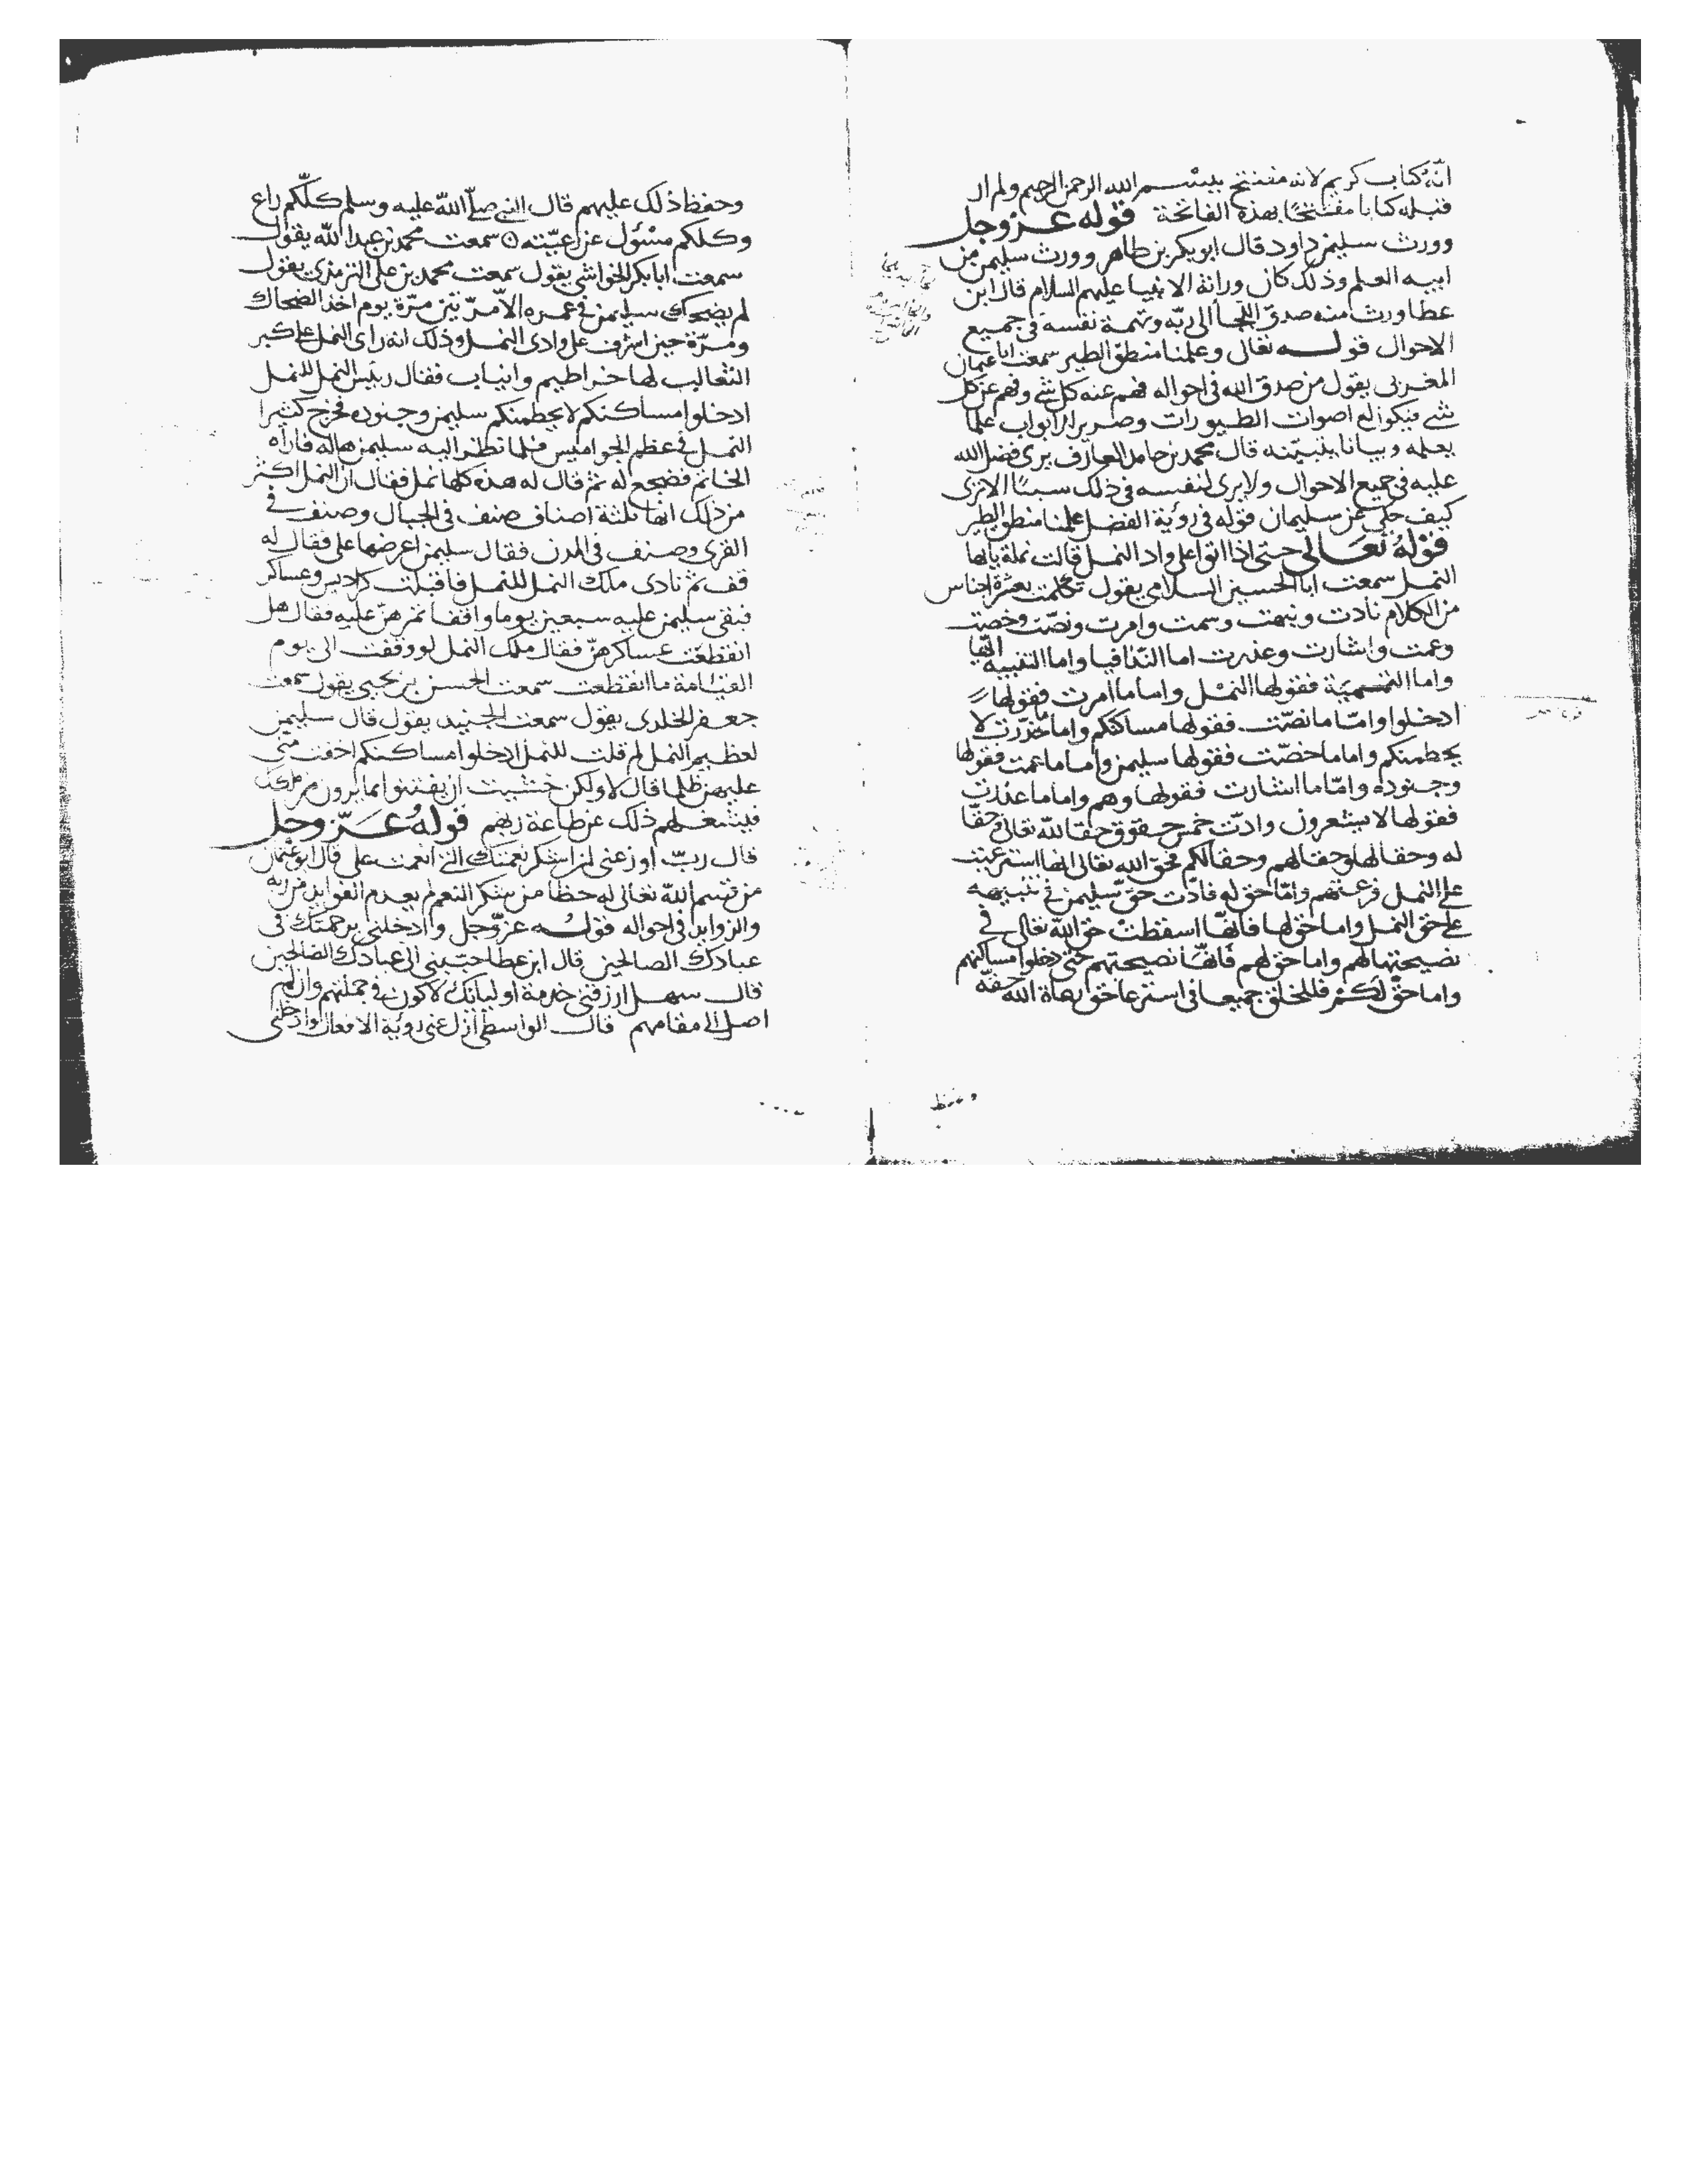 انّه كتاب كريم لانه مفتتح ببسم الله الرحمن الرحيم ولم ار
قبله كتابا مفتتحًا بهذه الفاتحة قوله عز وجل
وورث سليمن داود قال ابو بكر بن طاهر وورث سليمن من
ابيه العلم وذلك كان وراثة الانبيا عليهم السلام قال ابن
عطا ورث منه صدق اللجأ الى ربّه وتهمة نفسه فى جميع
الاحوال قوله تعالى وعلمنا منطق الطير سمعت ابا عثمان
المغربى يقول من صدق الله فى احواله فهم عنه كل شى وفهم عن كل
شى فيكون له اصوات الطيورات وصرير الابواب علما
يعلمه وبيانا يتبيّنه قال محمد بن حامد العارف يرى فضل الله
عليه فى جميع الاحوال ولا يرى لنفسه فى ذلك سببًا الا ترى
كيف حكى عن سليمان قوله فى رؤية الفضل علمنا منطق الطير
قوله تعالى حتى اذا اتوا على واد النمل قالت نملة يايها
النمل سمعت ابا الحسين السلامى يقول تكلمت بعشرة اجناس
من الكلام نادت ونبهت وسمت وامرت ونصّت وخصت
وعمت واشارت وعذرت اما الندا فيا واما التنبيه ايّها
واما التسمية فقولها النمل واما ما امرت فقولها
ادخلوا وامّا ما نصّت فقولها مساكنكم واما ما حذّرت لا
يحطمنكم واما ما خصّت فقولها سليمن واما ما عمت فقولها
وجنوده وامّا ما اشارت فقولها وهم واما ما عذرت
فقولها لا يشعرون وادّت خمس حقوق حقا لله تعالى وحقّا
له وحقا لها وحقا لهم وحقا لكم فحق الله تعالى انها استرعيت
على النمل فرعتهم وامّا حق له فادّت حقّ سليمن فى تنبيهه
على حق النمل واما حق لها فانها اسقطت حق الله تعالى فى
نصيحتها لهم واما حق لهم فانها نصيحتهم حتى دخلوا مساكنهم
واما حقّ لكم فللخلق جميعا فى استرعا حق رعاة الله حقّه
وحفظ ذلك عليهم قال النبى صلّى الله عليه وسلم كلّكم راع
وكلكم مسؤل عن رعيّته سمعت محمد بن عبد الله يقول
سمعت ابا بكر الخواشى يقول سمعت محمد بن على الترمذى يقول
لم يضحك سليمن فى عمره الا مرّتين مرّة يوم اخذ الضحاك
ومرّة حين اشرف على وادى النمل وذلك انه راى النمل على كبر
الثعالب لها خراطيم وانياب فقال رئيس النمل للنمل
ادخلوا مساكنكم لا يحطمنكم سليمن وجنوده فخرج كثيرا
النمل فى عظم الجواميس فلما نظر اليه سليمن هاله فاراه
الخاتم فخضع له ثم قال له هذه كلها نمل فقال ان النمل اكثر
من ذلك انها ثلثة اصناف صنف فى الجبال وصنف فى
القرى وصنف فى المدن فقال سليمن اعرضها على فقال له
قف ثم نادى ملك النمل للنمل فاقبلت كراديس وعساكر
فبقى سليمن عليه سبعين يوما واقفا تمر هن عليه فقال هل
انقطعت عساكر هن فقال ملك النمل لو وقفت الى يوم
القيامة ما انقطعت سمعت الحسن بن يحيى يقول سمعت
جعفر الخلدى يقول سمعت الجنيد يقول قال سليمن
لعظيم النمل لم قلت للنمل ادخلوا مساكنكم اخفت منّى
عليهن ظلما قال لا ولكن خشيت ان يفتتنوا بما يرون من ملكك
فيشغلهم ذلك عن طاعة ربهم قوله عزّ وجل
قال ربّ اوزعنى ان اشكر نعمتك التى انعمت على قال ابو عثمان
من قسم الله تعالى له حظا من شكر النعم لم يعدم الفوايد من ربه
والزوايد فى احواله قوله عزّ وجل وادخلنى برحمتك فى
عبادك الصالحين قال ابن عطا حببنى الى عبادك الصالحين
قال سهل ارزقنى خدمة اوليائك لاكون فى جملتهم وان لم
اصل الى مقامهم قال الواسطى ازل عنى رؤية الافعال وادخلنى